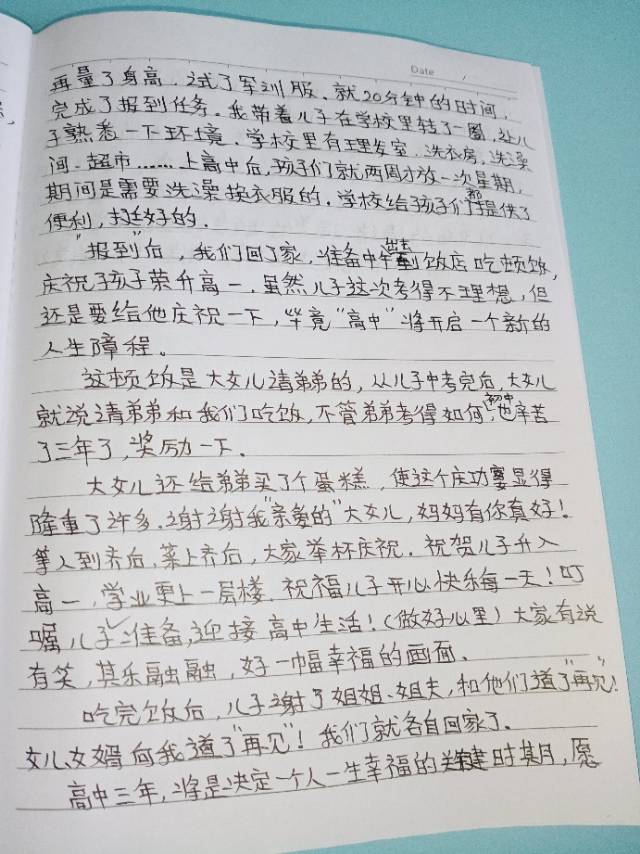 Date /
再量了身高,试了军训服、就20分钟的时间,
完成了报到任务。我带着儿子在学校里转了一圈,让儿
子熟悉一下环境。学校里有理发室、洗衣房,洗澡
间、超市……上高中后,孩子们就两周才放一次星期,
期间是需要洗澡换衣服的。学校给孩子们都提供了
便利,挺好的。
"报到"后,我们回了家,准备中午出去到饭店吃顿饭,
庆祝孩子荣升高一,虽然儿子这次考得不理想,但
还是要给他庆祝一下,毕竟"高中"将开启一个新的
人生障程。
这顿饭是大女儿请弟弟的,从儿子中考完后,大女儿
就说请弟弟和我们吃饭,不管弟弟考得如何,初中也辛苦
了三年了,奖励一下。
大女儿还给弟弟买了个蛋糕,使这个庆功宴显得
隆重了许多。谢谢我"亲爱的"大女儿,妈妈有你真好!
等人到齐后,菜上齐后,大家举杯庆祝。祝贺儿子升入
高一,学业更上一层楼,祝福儿子开心快乐每一天!叮
嘱儿子准备,迎接高中生活!(做好心里)大家有说
有笑,其乐融融,好一幅幸福的画面。
吃完饭后,儿子谢了姐姐、姐夫,和他们道了"再见"!
女儿、女婿向我道了"再见"!我们就各自回家了。
高中三年,将是决定一个人一生幸福的关键时期,愿